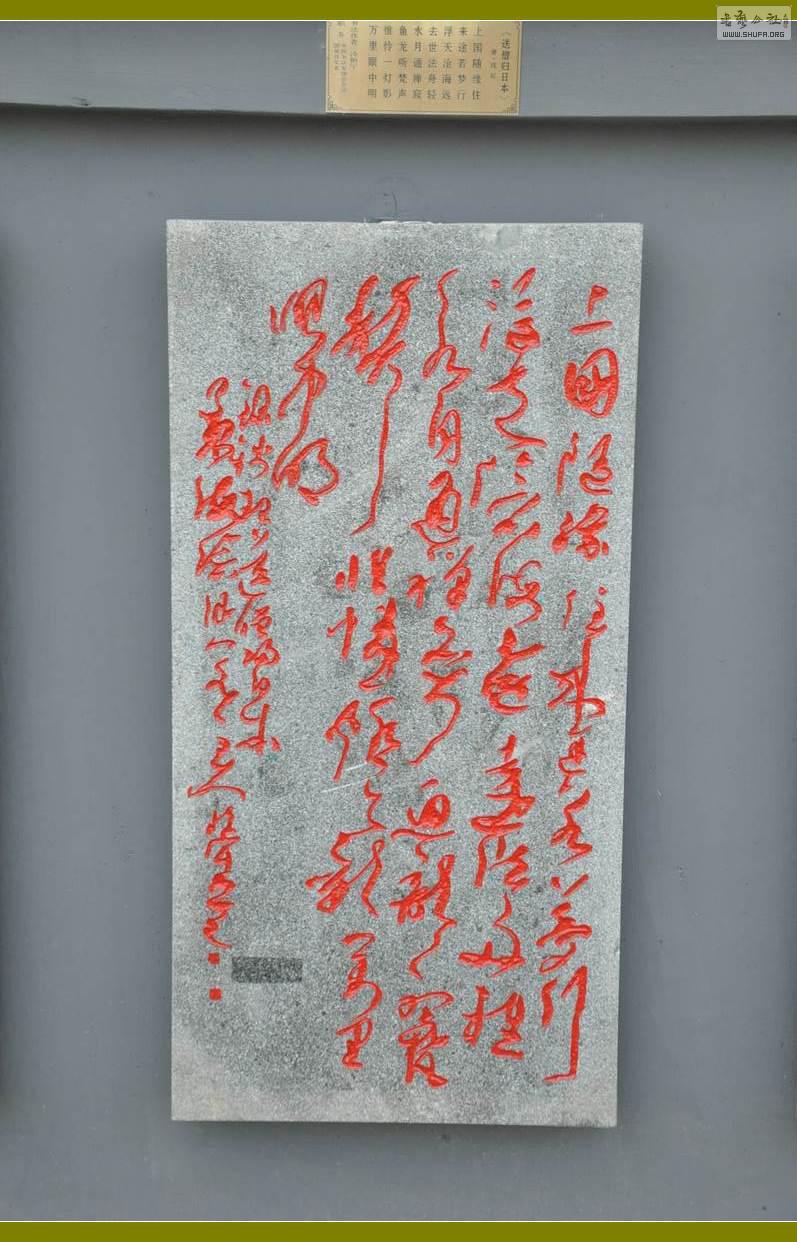 书艺公社
WWW.SHUFA.ORG
《送僧归日本》
唐·钱起
上国随缘住
来途若梦行
浮天沧海远
去世法舟轻
水月通禅寂
鱼龙听梵声
惟怜一灯影
万里眼中明
上國随缘住来途若夢行
浮天滄海遠去世法舟輕
水月通禅寂魚龍聽梵
聲惟憐一燈影萬里
眼中明
送僧歸日本